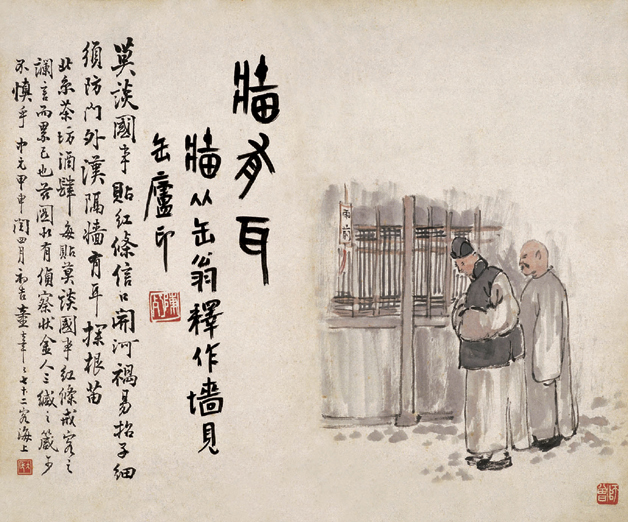 牆有耳
牆从缶翁釋作墻見
缶廬印
莫談國事貼紅條信口開河禍易招子細
須防門外漢隔墻有耳探根苗
北京茶坊酒肆每貼莫談國事紅條戒客之
讕言而累己也茲圖有偵察狀金人三緘之箴可
不慎乎 中元甲申閏四月初吉 七十二客海上
雨前
師曾